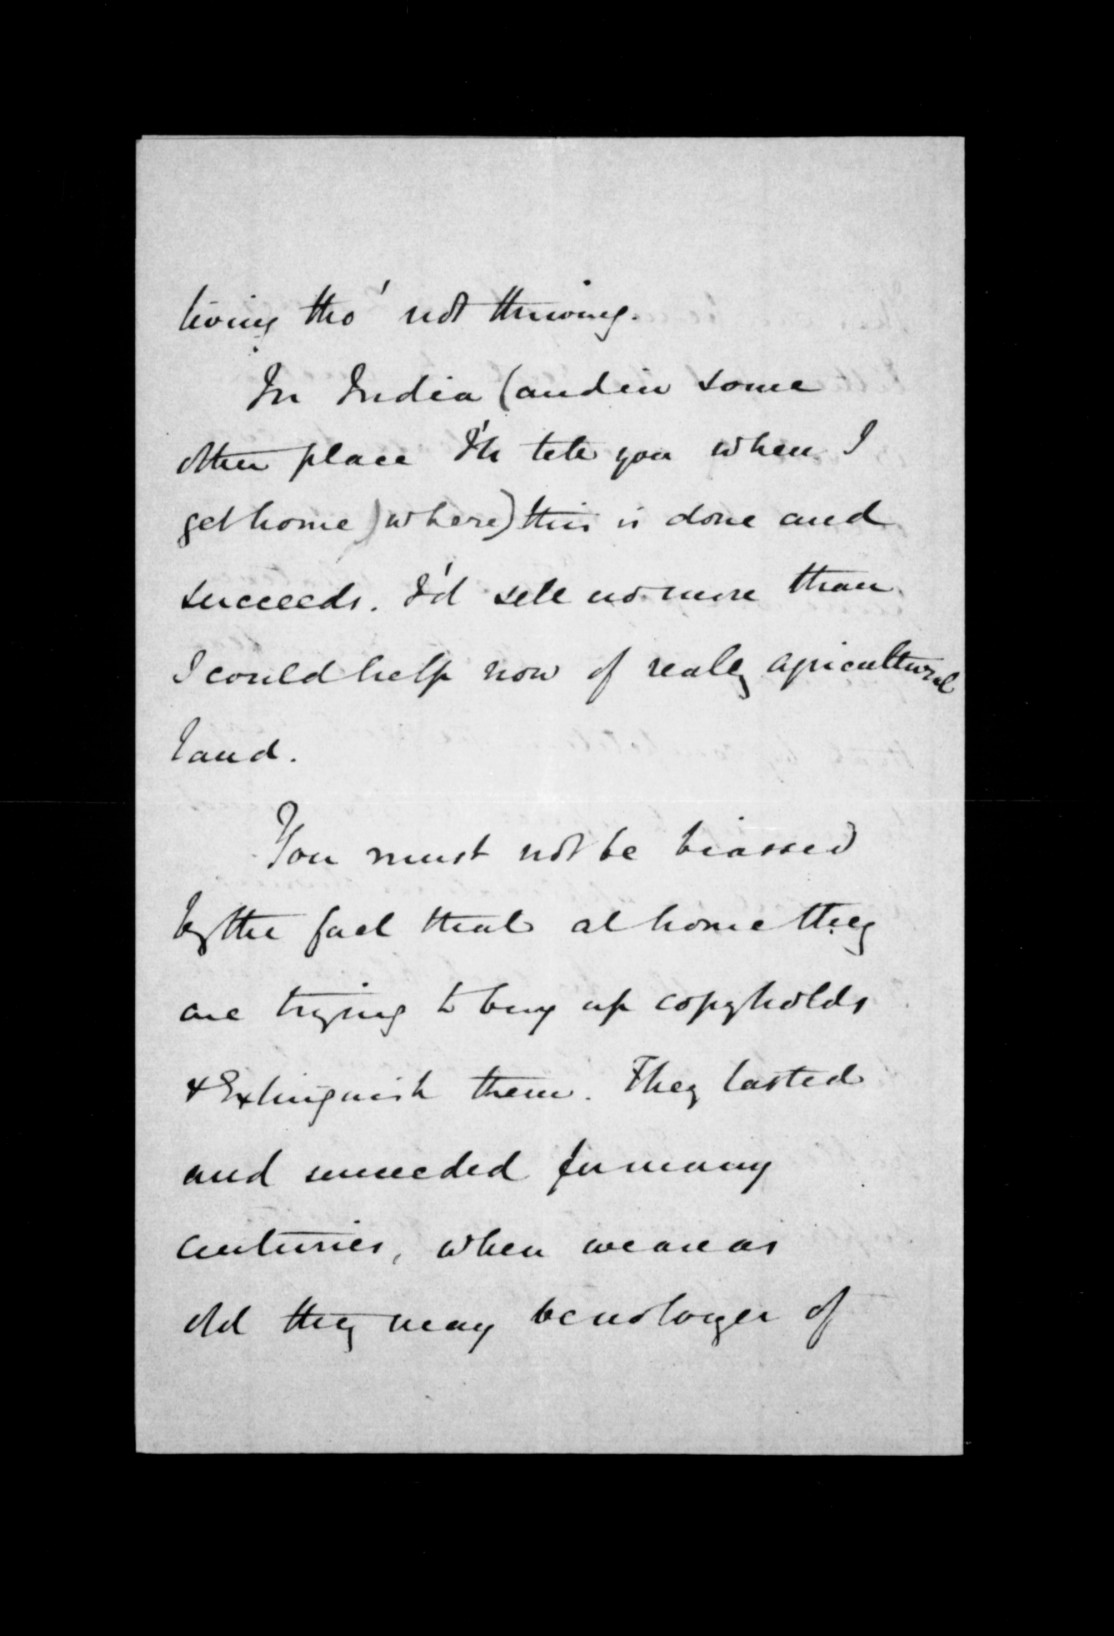 living tho' not thriving.
In India (and in some
other place I'll tell you when I
get home) where) this is done and
succeeds. I'd sell no more than
I could help now of really agricultural
land.
You must not be biassed
by the fact that at home they
are trying to buy up copyholds
& Extinguish them. They lasted
and succeeded for many
centuries, when we are as
old they may be no longer of